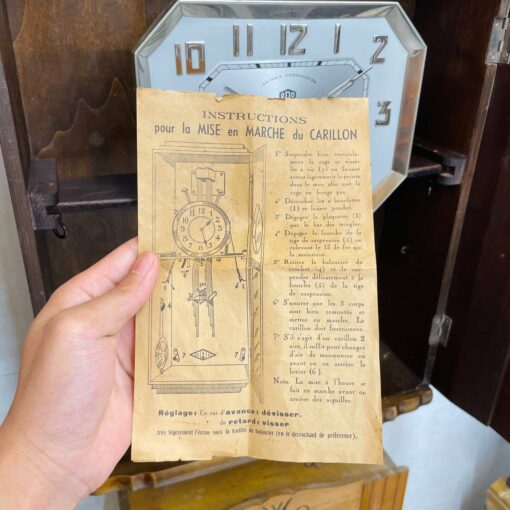 10 11 12 2 3
VERITABLE WESTMINSTER
ODO
INSTRUCTIONS
pour la MISE en MARCHE du CARILLON
1° Suspendre bien verticale-
ment la cage et visser
les 2 vis (7) en laissant
la pointe
dans le mur afin que la
cage ne bouge pas.
2° Décrocher les 2 boulettes
(1) et laisser pendre.
3° Dégager la plaquette (3)
par le bas des tringles.
4° Dégager la fourche de la
tige de suspension (5), en
enlevant le fil de fer qui
la maintient.
5° Retirer le balancier du
crochet (4) et le sus-
pendre délicatement à la
fourche (5) de la tige
de suspension.
6° S'assurer que les 3 corps
sont bien remontés et
mettre en marche. Le
carillon doit fonctionner.
7° S'il s'agit d'un carillon 2
airs, il suffit pour changer
d'air de manœuvrer en
avant ou en arrière le
levier (6).
Nota. La mise à l'heure se
fait en marche avant ou
arrière des aiguilles.
ODO
7 7
Réglage: En cas d'avance: dévisser.
de retard: visser
très légèrement l'écrou sous la lentille du balancier (en le décrochant de préférence).